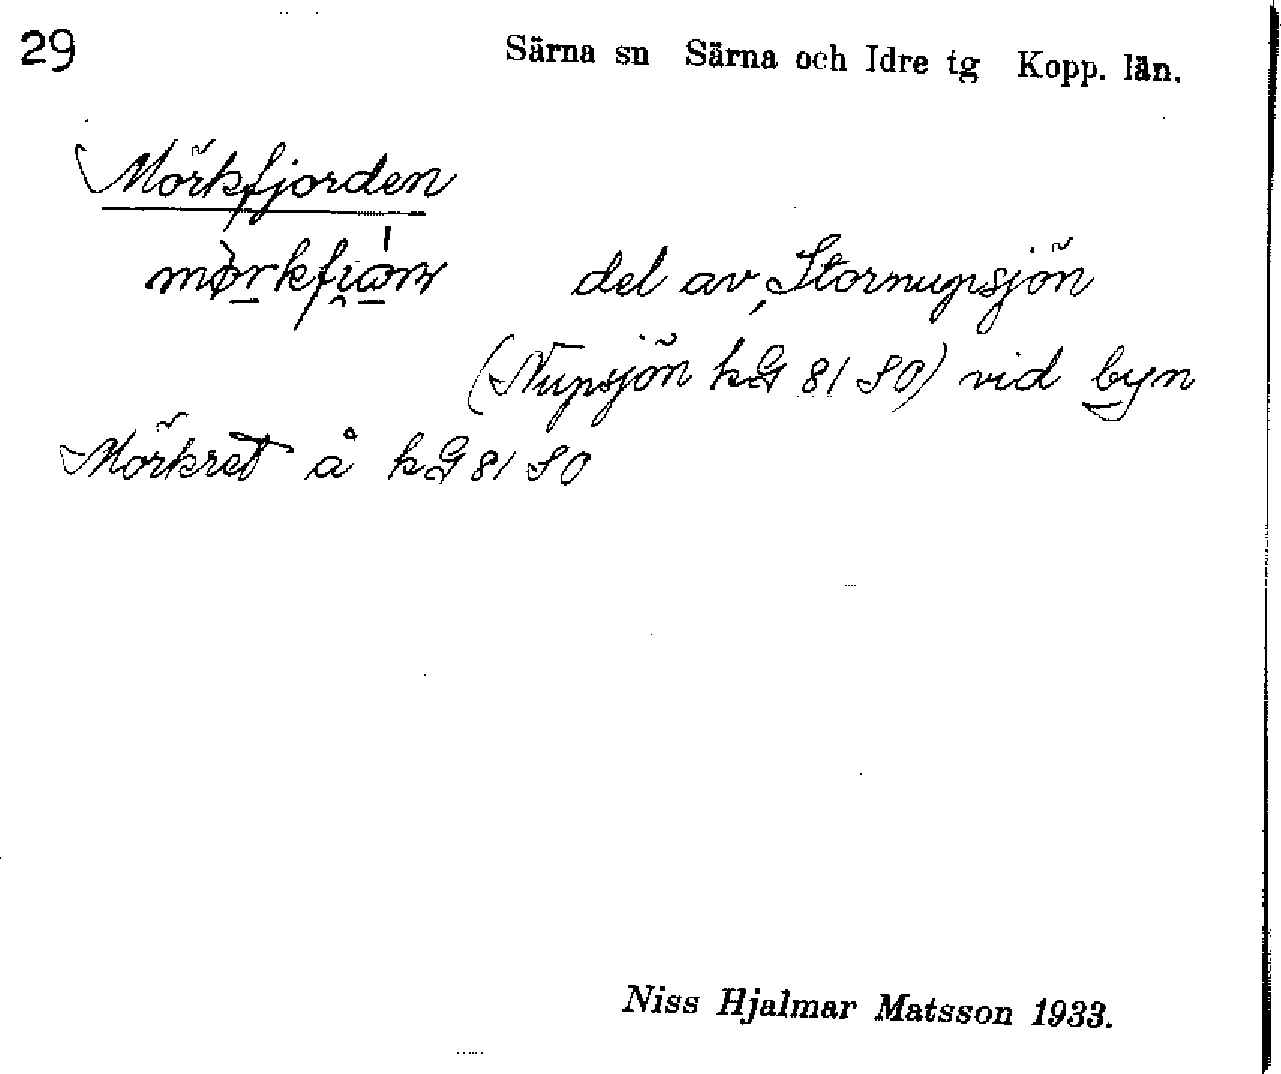 29
Särna sn Särna och Idre tg Kopp. län.
Mörkfjorden
del av Stornupsjön
(Nupsjön kG 81 SO) vid byn
Mörkret å kG 81 SO
Niss Hjalmar Matsson 1933.